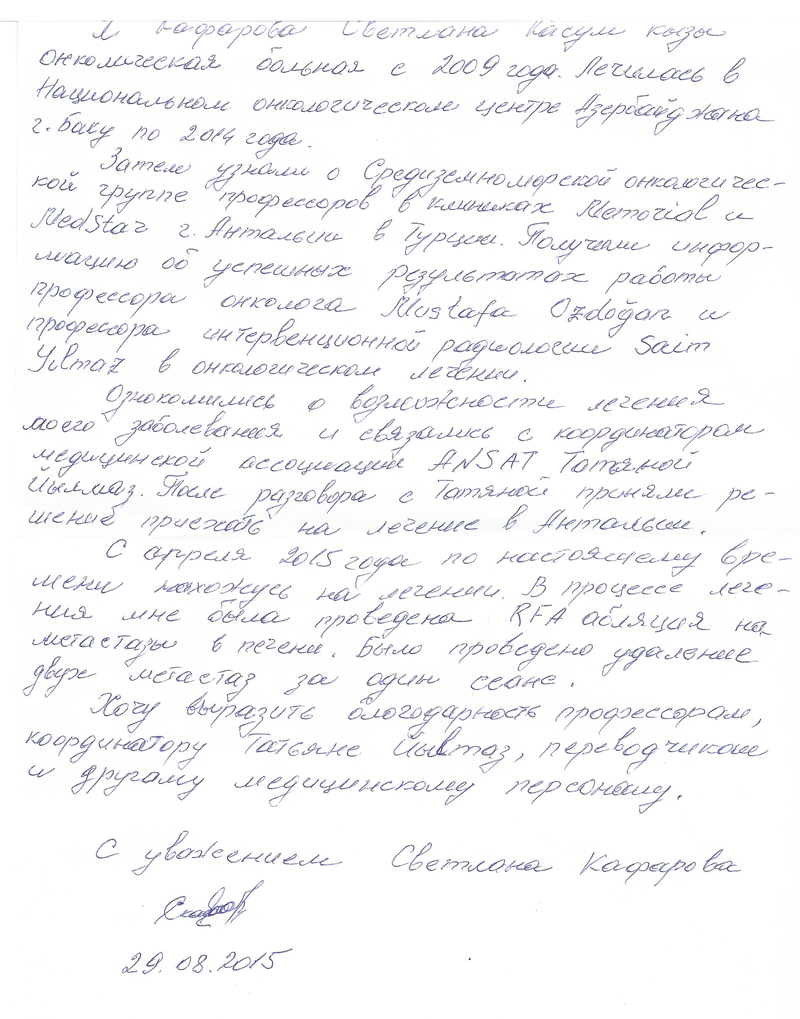 Я Кафарова Светлана Касум кызы
онкомическая больная с 2009 года. Лечилась в
Национальном онкологическом центре Азербайджана
г. Баку по 2014 года.
Затем узнали о Средиземноморской онкологичес-
кой группе профессоров в клиниках Memorial и
MedStar г. Анталии в Турции. Получили инфор-
мацию об успешных результатах работы
профессора онколога Mustafa Ozdoğan и
профессора интервенционной радиологии Saim
Yılmaz в онкологическом лечении.
Ознокомились о возможности лечения
моего заболевания и связались с координатором
медицинской ассоциаций ANSAT Татяной
Йылмаз. После разговора с Татяной приняли ре-
шение приехать на лечение в Анталии.
С апреля 2015 года по настоящему вре-
мени нахожусь на лечении. В процессе лече-
ния мне была проведена RFA абляция на
метастазы в печени. Было проведено удаление
двух метастаз за один сеанс.
Хочу выразить благодарность профессорам,
координатору Татьяне Йылмаз, переводчикам
и другому медицинскому персоналу.
С уважением Светлана Кафарова
29.08.2015